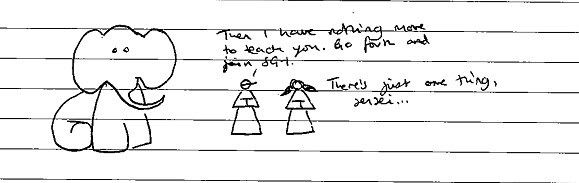 Then I have nothing more
to teach you. Go forth and
join SG-1.
There's just one thing,
sensei...